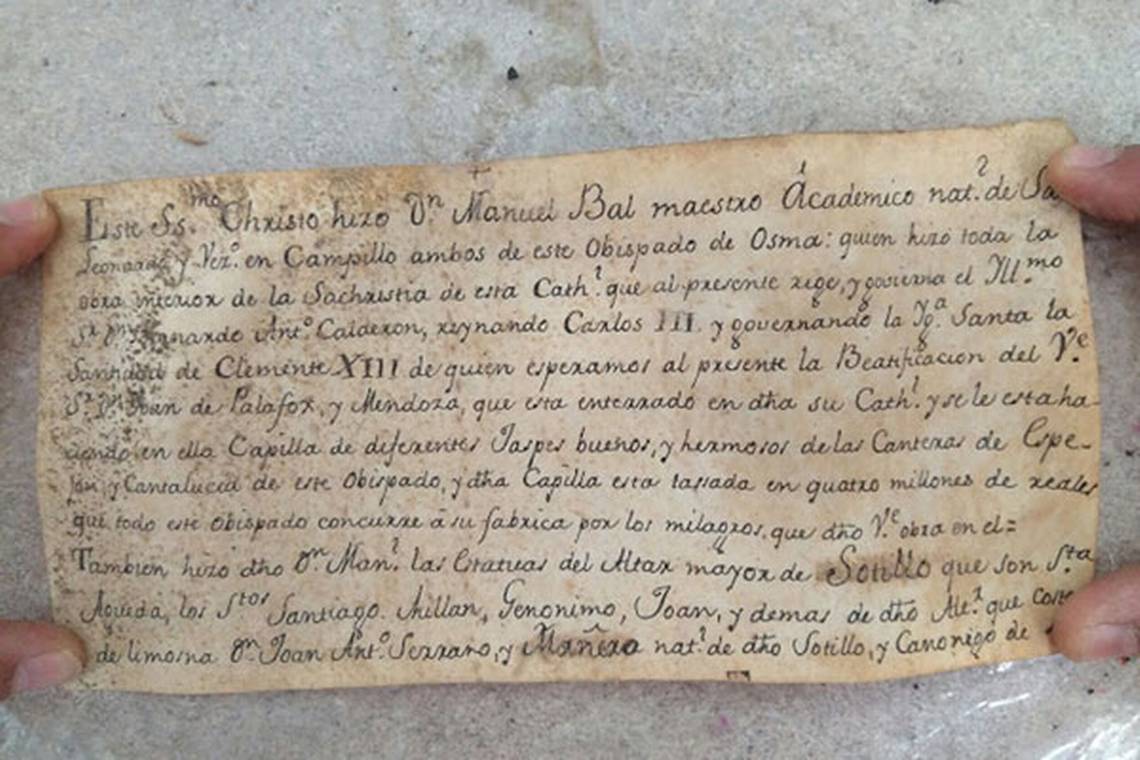 Este Ss.mo Christo hizo Dn. Manuel Bal maestro Academico nat.l de Sa
Leonardo y Vez.o en Campillo ambos de este Obispado de Osma: quien hizo toda la
obra interior de la Sachristia de esta Cath.l que al presente rige, y govierna el Yll.mo
Sr. Dn. Bernardo Ant.o Calderon, reynando Carlos III. y governando la Yg.a Santa la
Santidad de Clemente XIII de quien esperamos al presente la Beatificacion del V.e
Sr. D. Juan de Palafox, y Mendoza, que esta enterrado en dha su Cath.l y se le esta ha-
ciendo en ella Capilla de diferentes Jaspes buenos, y hermosos de las Canteras de Espe-
jón, y Cantalucia de este Obispado, y dha Capilla esta tassada en quatro millones de reales
que todo este Obispado concurre a su fabrica por los milagros, que dho V.e obra en el=
Tambien hizo dho Dn. Man.l las Estatuas del Altar mayor de Sotillo que son S.ta
Agueda, los S.tos Santiago. Millan, Geronimo, Joan, y demas de dho Alt.r que costeo
de limosna Dn. Joan Ant.o Serrano, y Mañero nat.l de dho Sotillo, y Canonigo de